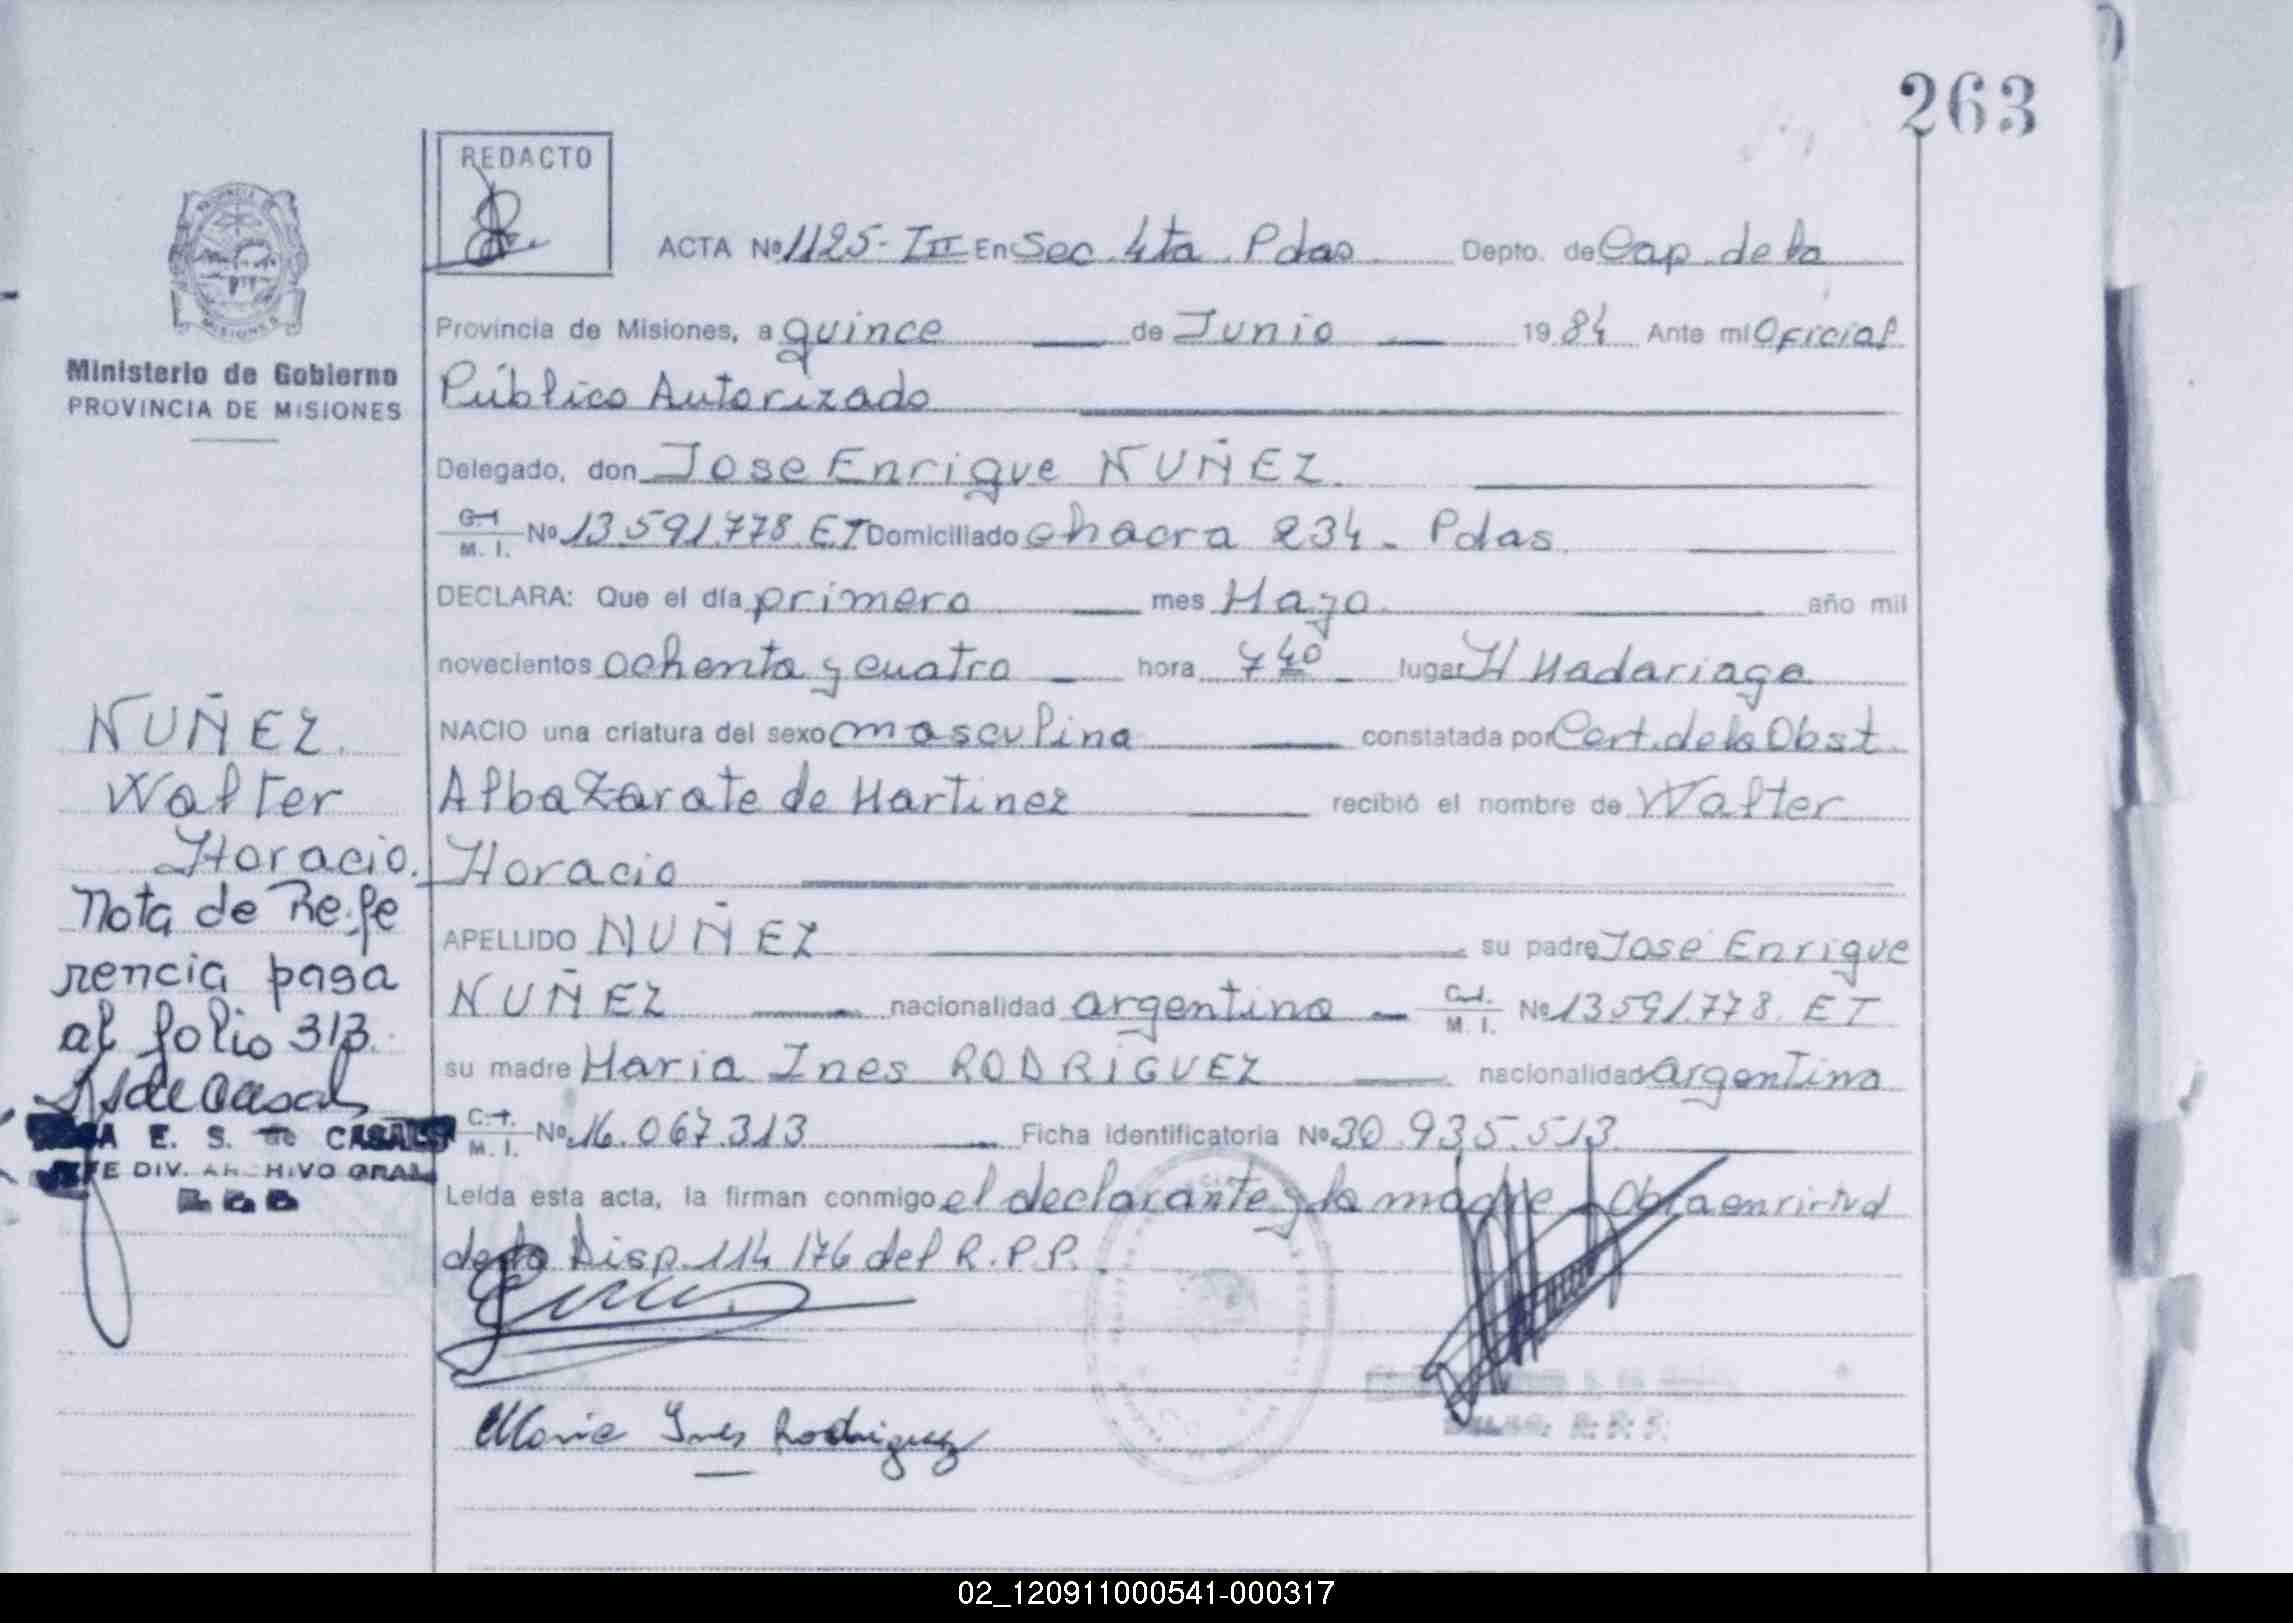 263
REDACTO
ACTA Nº 1125-III En Sec. 4ta. Pdas Depto. de Cap. de la
Provincia de Misiones, a quince de Junio 1984 Ante mi Oficial
Ministerio de Gobierno
PROVINCIA DE MISIONES
Público Autorizado
Delegado, don Jose Enrique NUÑEZ.
C.I. M. I. Nº 13.591.778 ET Domiciliado chacra 234 - Pdas.
DECLARA: Que el día primero mes Mayo año mil
novecientos ochenta y cuatro hora 7 40 lugar H Madariaga
NACIO una criatura del sexo masculina constatada por Cert. de la Obst.
Alba Zarate de Martinez recibió el nombre de Walter
Horacio
APELLIDO NUÑEZ su padre José Enrique
NUÑEZ nacionalidad argentina C.I. M. I. Nº 13.591.778. ET
su madre Maria Ines RODRIGUEZ nacionalidad argentina
C.I. M. I. Nº 16.067.313 Ficha identificatoria Nº 30.935.513
Leída esta acta, la firman conmigo el declarante y la madre Obra en virtud
de la Disp. 114/76 del R.P.P.
Maria Ines Rodriguez
NUÑEZ.
Walter
Horacio.
Nota de Refe
rencia pasa
al folio 313.
E. S. de CASALS
JEFE DIV. ARCHIVO GRAL
MISIONES
02_120911000541-000317